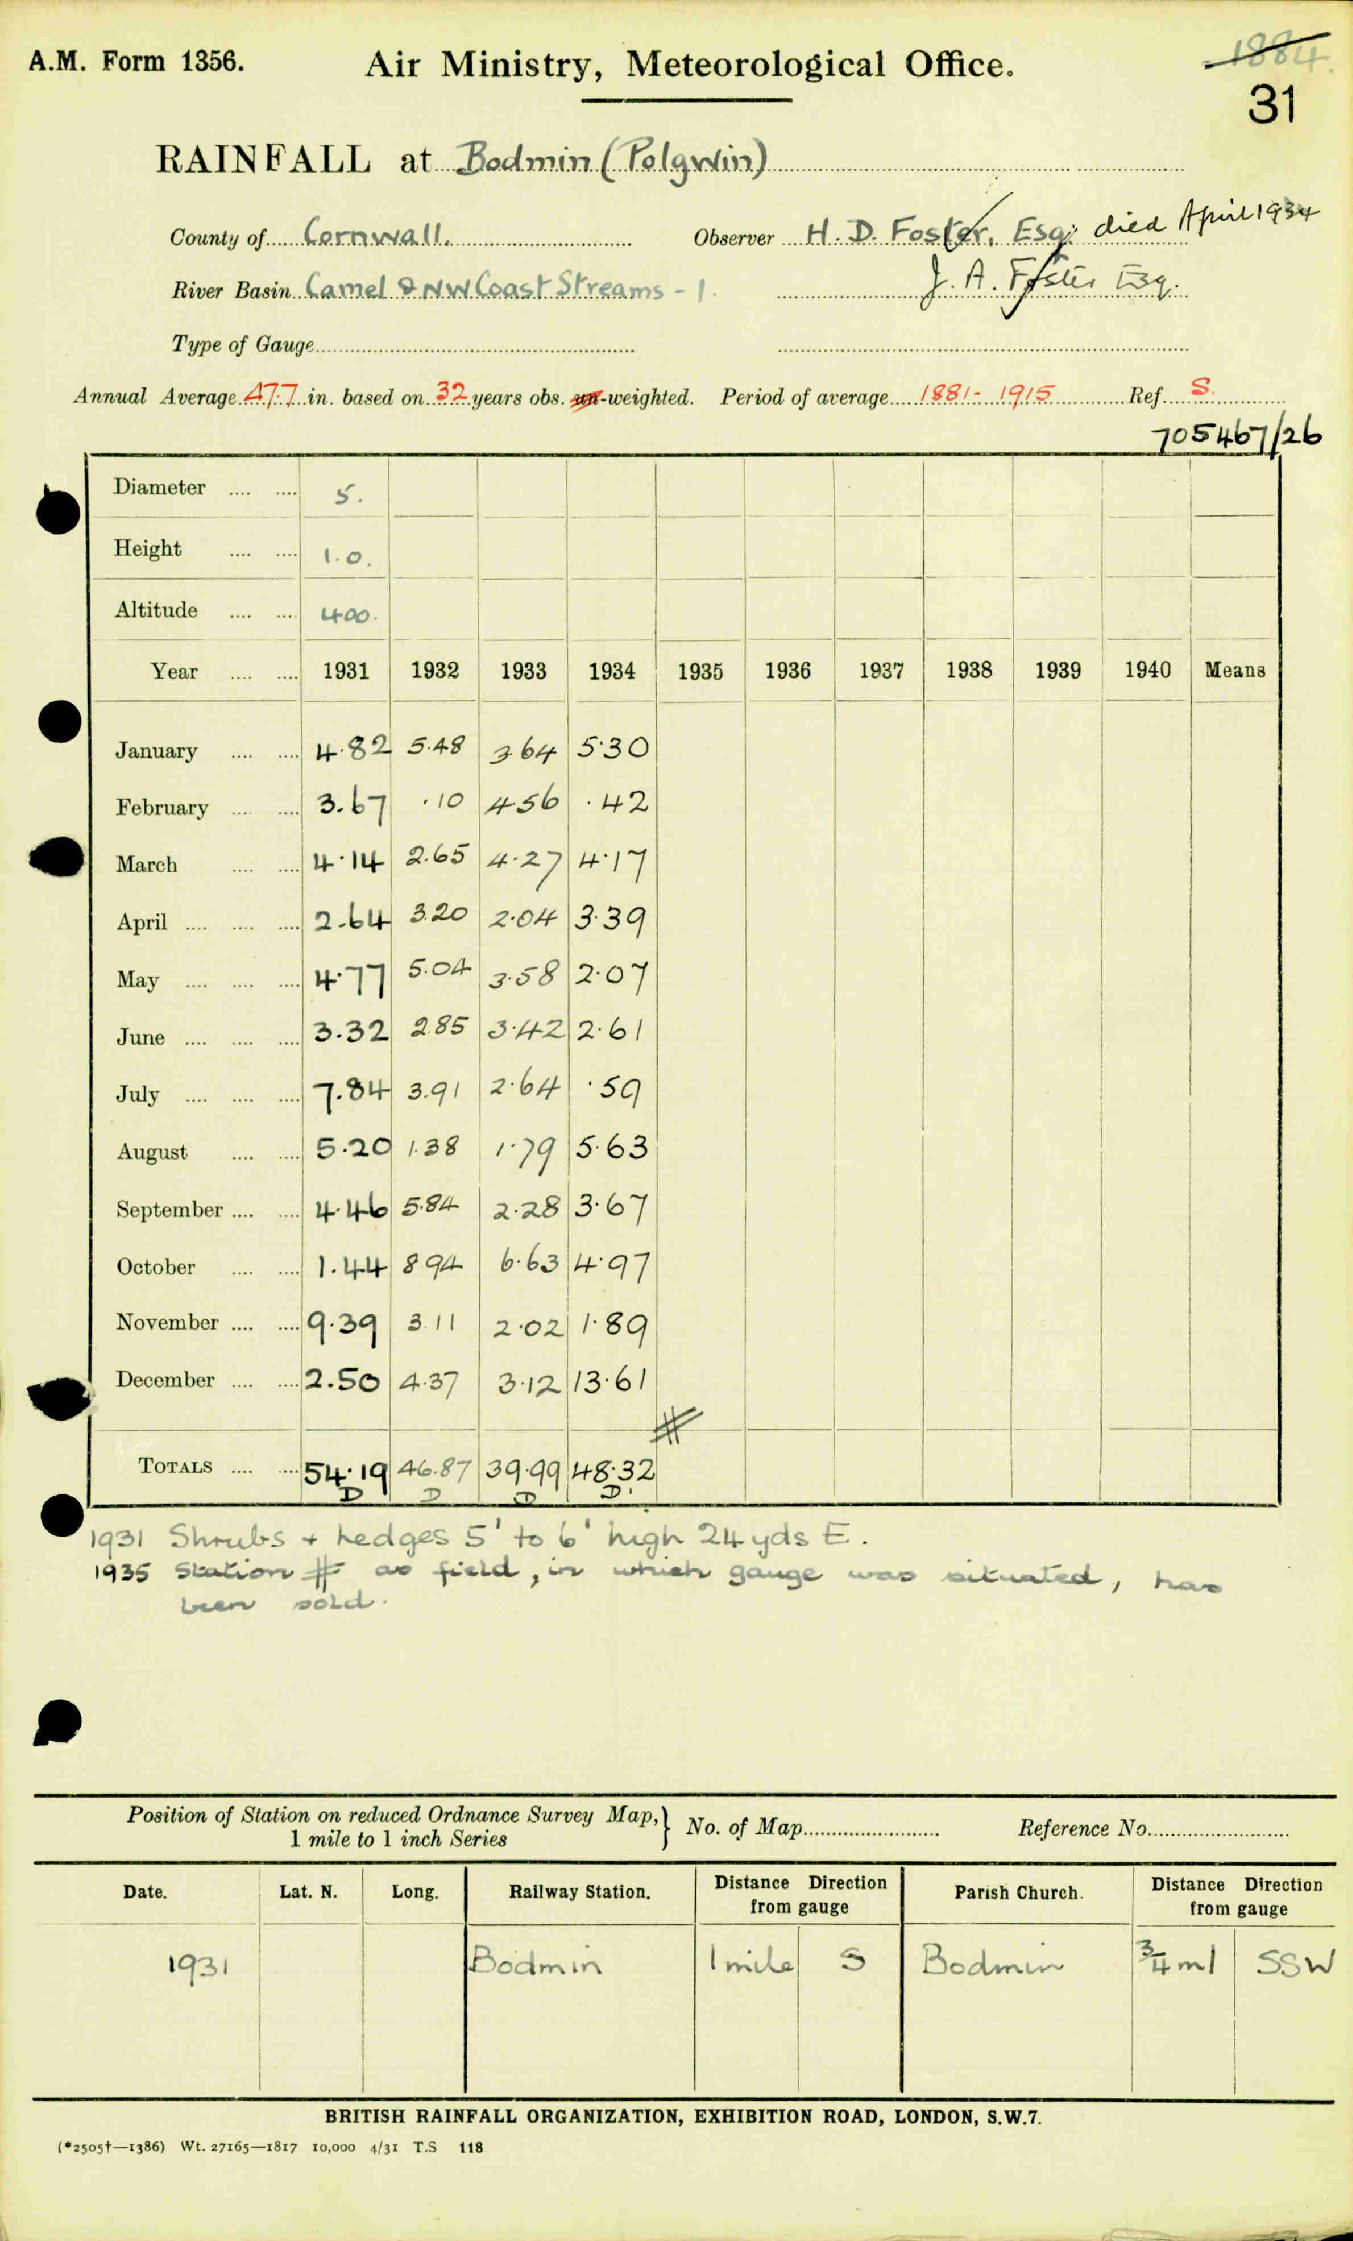 1884.
A.M. Form 1356. Air Ministry, Meteorological Office.
31
RAINFALL at Bodmin (Polgwin)
County of Cornwall. Observer H. D. Foster, Esq: died April 1934
River Basin Camel & NW Coast Streams - 1. J. A. Foster Esq.
Type of Gauge
Annual Average 47.7 in. based on 32 years obs. un-weighted. Period of average 1881 - 1915 Ref. S.
705467/26
Diameter .... .... 5.
Height .... .... 1.0.
Altitude .... .... 400.
Year .... .... 1931 1932 1933 1934 1935 1936 1937 1938 1939 1940 Means
January .... .... 4.82 5.48 3.64 5.30
February .... .... 3.67 .10 4.56 .42
March .... .... 4.14 2.65 4.27 4.17
April .... .... .... 2.64 3.20 2.04 3.39
May .... .... .... 4.77 5.04 3.58 2.07
June .... .... .... 3.32 2.85 3.42 2.61
July .... .... .... 7.84 3.91 2.64 .59
August .... .... 5.20 1.38 1.79 5.63
September .... .... 4.46 5.84 2.28 3.67
October .... .... 1.44 8.94 6.63 4.97
November .... .... 9.39 3.11 2.02 1.89
December .... .... 2.50 4.37 3.12 13.61
TOTALS .... .... 54.19 46.87 39.99 48.32
D D D D.
1931 Shrubs + hedges 5' to 6' high 24 yds E.
1935 Station # as field, in which gauge was situated, has
been sold.
Position of Station on reduced Ordnance Survey Map, } No. of Map Reference No.
1 mile to 1 inch Series
Date. Lat. N. Long. Railway Station. Distance Direction from gauge Parish Church. Distance Direction from gauge
1931 Bodmin 1 mile S Bodmin 3/4 ml SSW
BRITISH RAINFALL ORGANIZATION, EXHIBITION ROAD, LONDON, S.W.7.
(*2505†—1386) Wt. 27165—1817 10,000 4/31 T.S 118